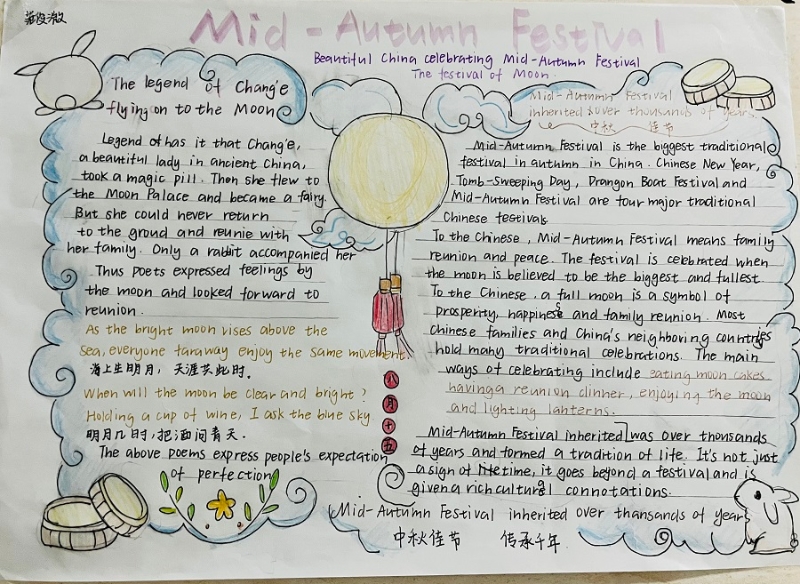 Mid-Autumn Festival
Beautiful China celebrating Mid-Autumn Festival
The festival of Moon
The legend of Chang'e
flying on to the Moon
Legend of has it that Chang'e,
a beautiful lady in ancient China,
took a magic pill. Then she flew to
the Moon Palace and became a fairy.
But she could never return
to the ground and reunie with
her family. Only a rabbit accompanied her
Thus poets expressed feelings by
the moon and looked forward to
reunion.
As the bright moon rises above the
sea, everyone faraway enjoy the same movement.
海上生明月，天涯共此时.
When will the moon be clear and bright?
Holding a cup of wine, I ask the blue sky.
明月几时，把酒问青天.
The above poems express people's expectation
of perfection
八月十五
Mid-Autumn Festival
inherited over thousands of years
中秋 佳节
Mid-Autumn Festival is the biggest traditional
festival in autumn in China. Chinese New Year,
Tomb-Sweeping Day, Drangon Boat Festival and
Mid-Autumn Festival are four major traditional
Chinese festivals
To the Chinese, Mid-Autumn Festival means family
reunion and peace. The festival is celebrated when
the moon is believed to be the biggest and fullest.
To the Chinese, a full moon is a symbol of
prosperity, happiness and family reunion. Most
Chinese families and China's neighboring countries
hold many traditional celebrations. The main
ways of celebrating include eating moon cakes
having a reunion dinner, enjoying the moon
and lighting lanterns.
Mid-Autumn Festival inherited was over thousands
of years and formed a tradition of life. It's not just
a sign of lifetime, it goes beyond a festival and is
given a rich cultural connotations.
Mid-Autumn Festival inherited over thansands of year
中秋佳节 传承千年